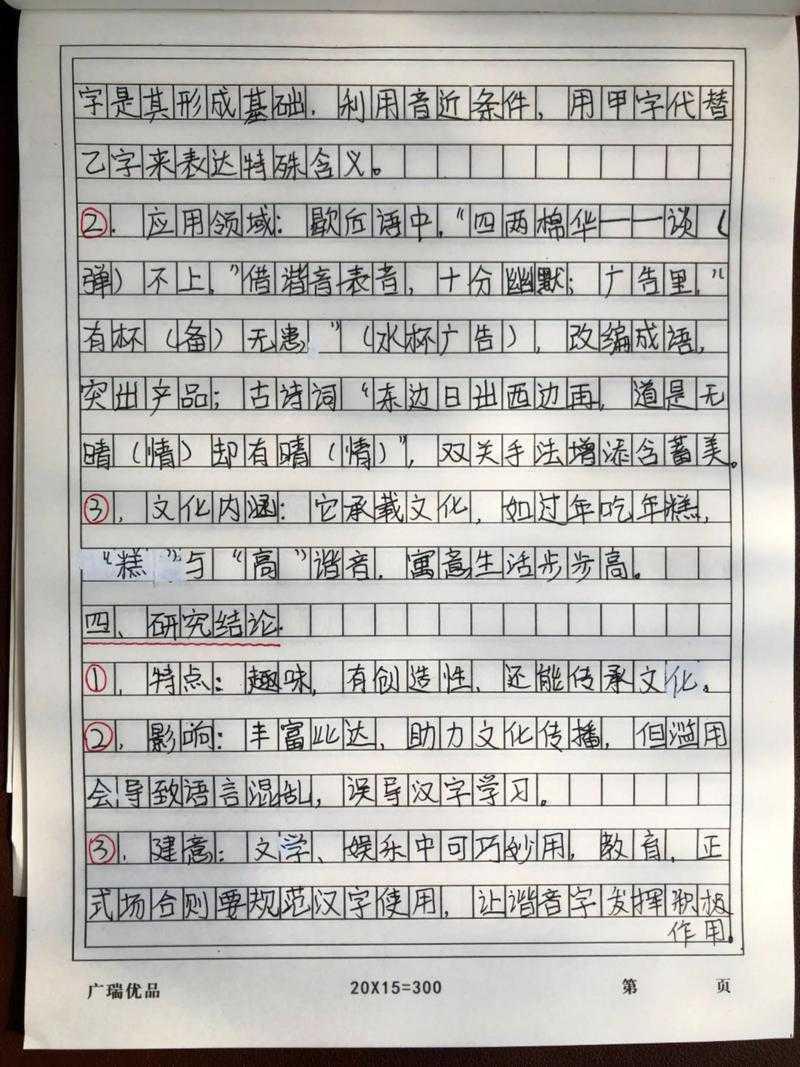 字是其形成基础，利用音近条件，用甲字代替
乙字来表达特殊含义。
②．应用领域：歇后语中，“四两棉华——谈（
弹）不上，”借谐音表音，十分幽默；广告里，“
有杯（备）无患”（水杯广告），改编成语，
突出产品；古诗词“东边日出西边再，道是无
晴（情）却有晴（情）”，双关手法增添含蓄美。
③．文化内涵：它承载文化，如过年吃年糕，
“糕”与“高”谐音，寓意生活步步高。
四、研究结论
①．特点：趣味，有创造性，还能传承文化。
②．影响：丰富业达，助力文化传播，但滥用
会导致语言混乱，误导汉字学习。
③．建意：文学、娱乐中可巧妙用，教育、正
式场合则要规范汉字使用，让谐音字发挥积极
作用。
广瑞优品 20X15=300 第 页